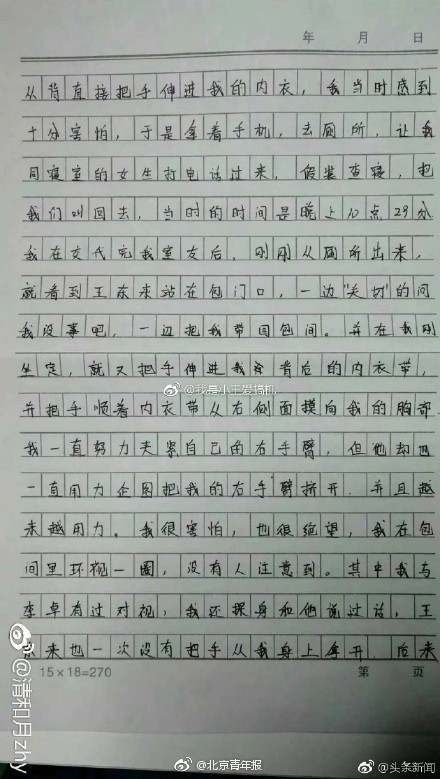 年 月 日
从背直接把手伸进我的内衣，我当时感到
十分害怕，于是拿着手机，去厕所，让我
同寝室的女生打电话过来，假装查寝，把
我们叫回去，当时的时间是晚上10点29分
我在交代完我室友后，刚刚从厕所出来，
就看到王东来站在包门口，一边"关切"的问
我没事吧，一边把我带回包间。并在我刚
坐定，就又把手伸进我背后的内衣带，
@我是小王爱搞机
并把手顺着内衣带从右侧面摸向我的胸部
我一直努力夹紧自己的右手臂，但他却也
一直用力企图把我的右手臂挤开，并且越
来越用力。我很害怕，也很绝望，我在包
间里环视一圈，没有人注意到。其中我与
李卓有过对视，我还探身和他说过话，王
东来也一次没有把手从我身上拿开，后来
15×18=270 第 页
@清和月zhy
@北京青年报
@头条新闻